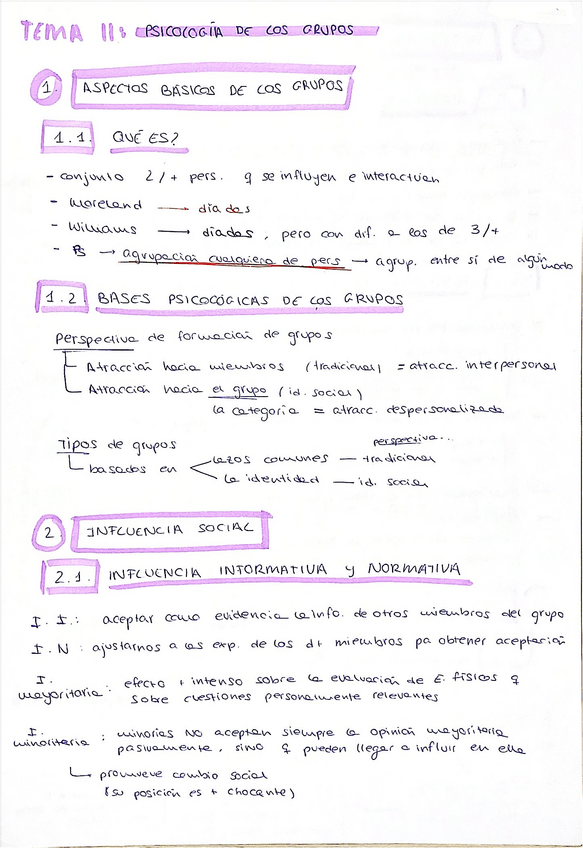 TEMA 11: PSICOLOGÍA DE LOS GRUPOS
1. ASPECTOS BÁSICOS DE LOS GRUPOS
1.1. QUÉ ES?
- conjunto 2/+ pers. q se influyen e interactúan
- Moreland → díadas
- Williams → díadas, pero con dif. a los de 3/+
- Ps → agrupación cualquiera de pers → agrup. entre sí de algún modo
1.2 BASES PSICOLÓGICAS DE LOS GRUPOS
Perspectiva de formación de grupos
Atracción hacia miembros (tradicional) = atracc. interpersonal
Atracción hacia el grupo (id. social)
la categoría = atracc. despersonalizada
Tipos de grupos
perspectiva...
basados en
lazos comunes — tradicional
la identidad — id. social
2 INFLUENCIA SOCIAL
2.1. INFLUENCIA INFORMATIVA y NORMATIVA
I. I.: aceptar como evidencia la info. de otros miembros del grupo
I. N: ajustarnos a las exp. de los d+ miembros pa obtener aceptación
I. mayoritaria: efecto + intenso sobre la evaluación de E. físicos q
sobre cuestiones personalmente relevantes
I. minoritaria: minorías NO aceptan siempre la opinión mayoritaria
pasivamente, sino q pueden llegar a influir en ella
↳ promueve cambio social
(su posición es + chocante)